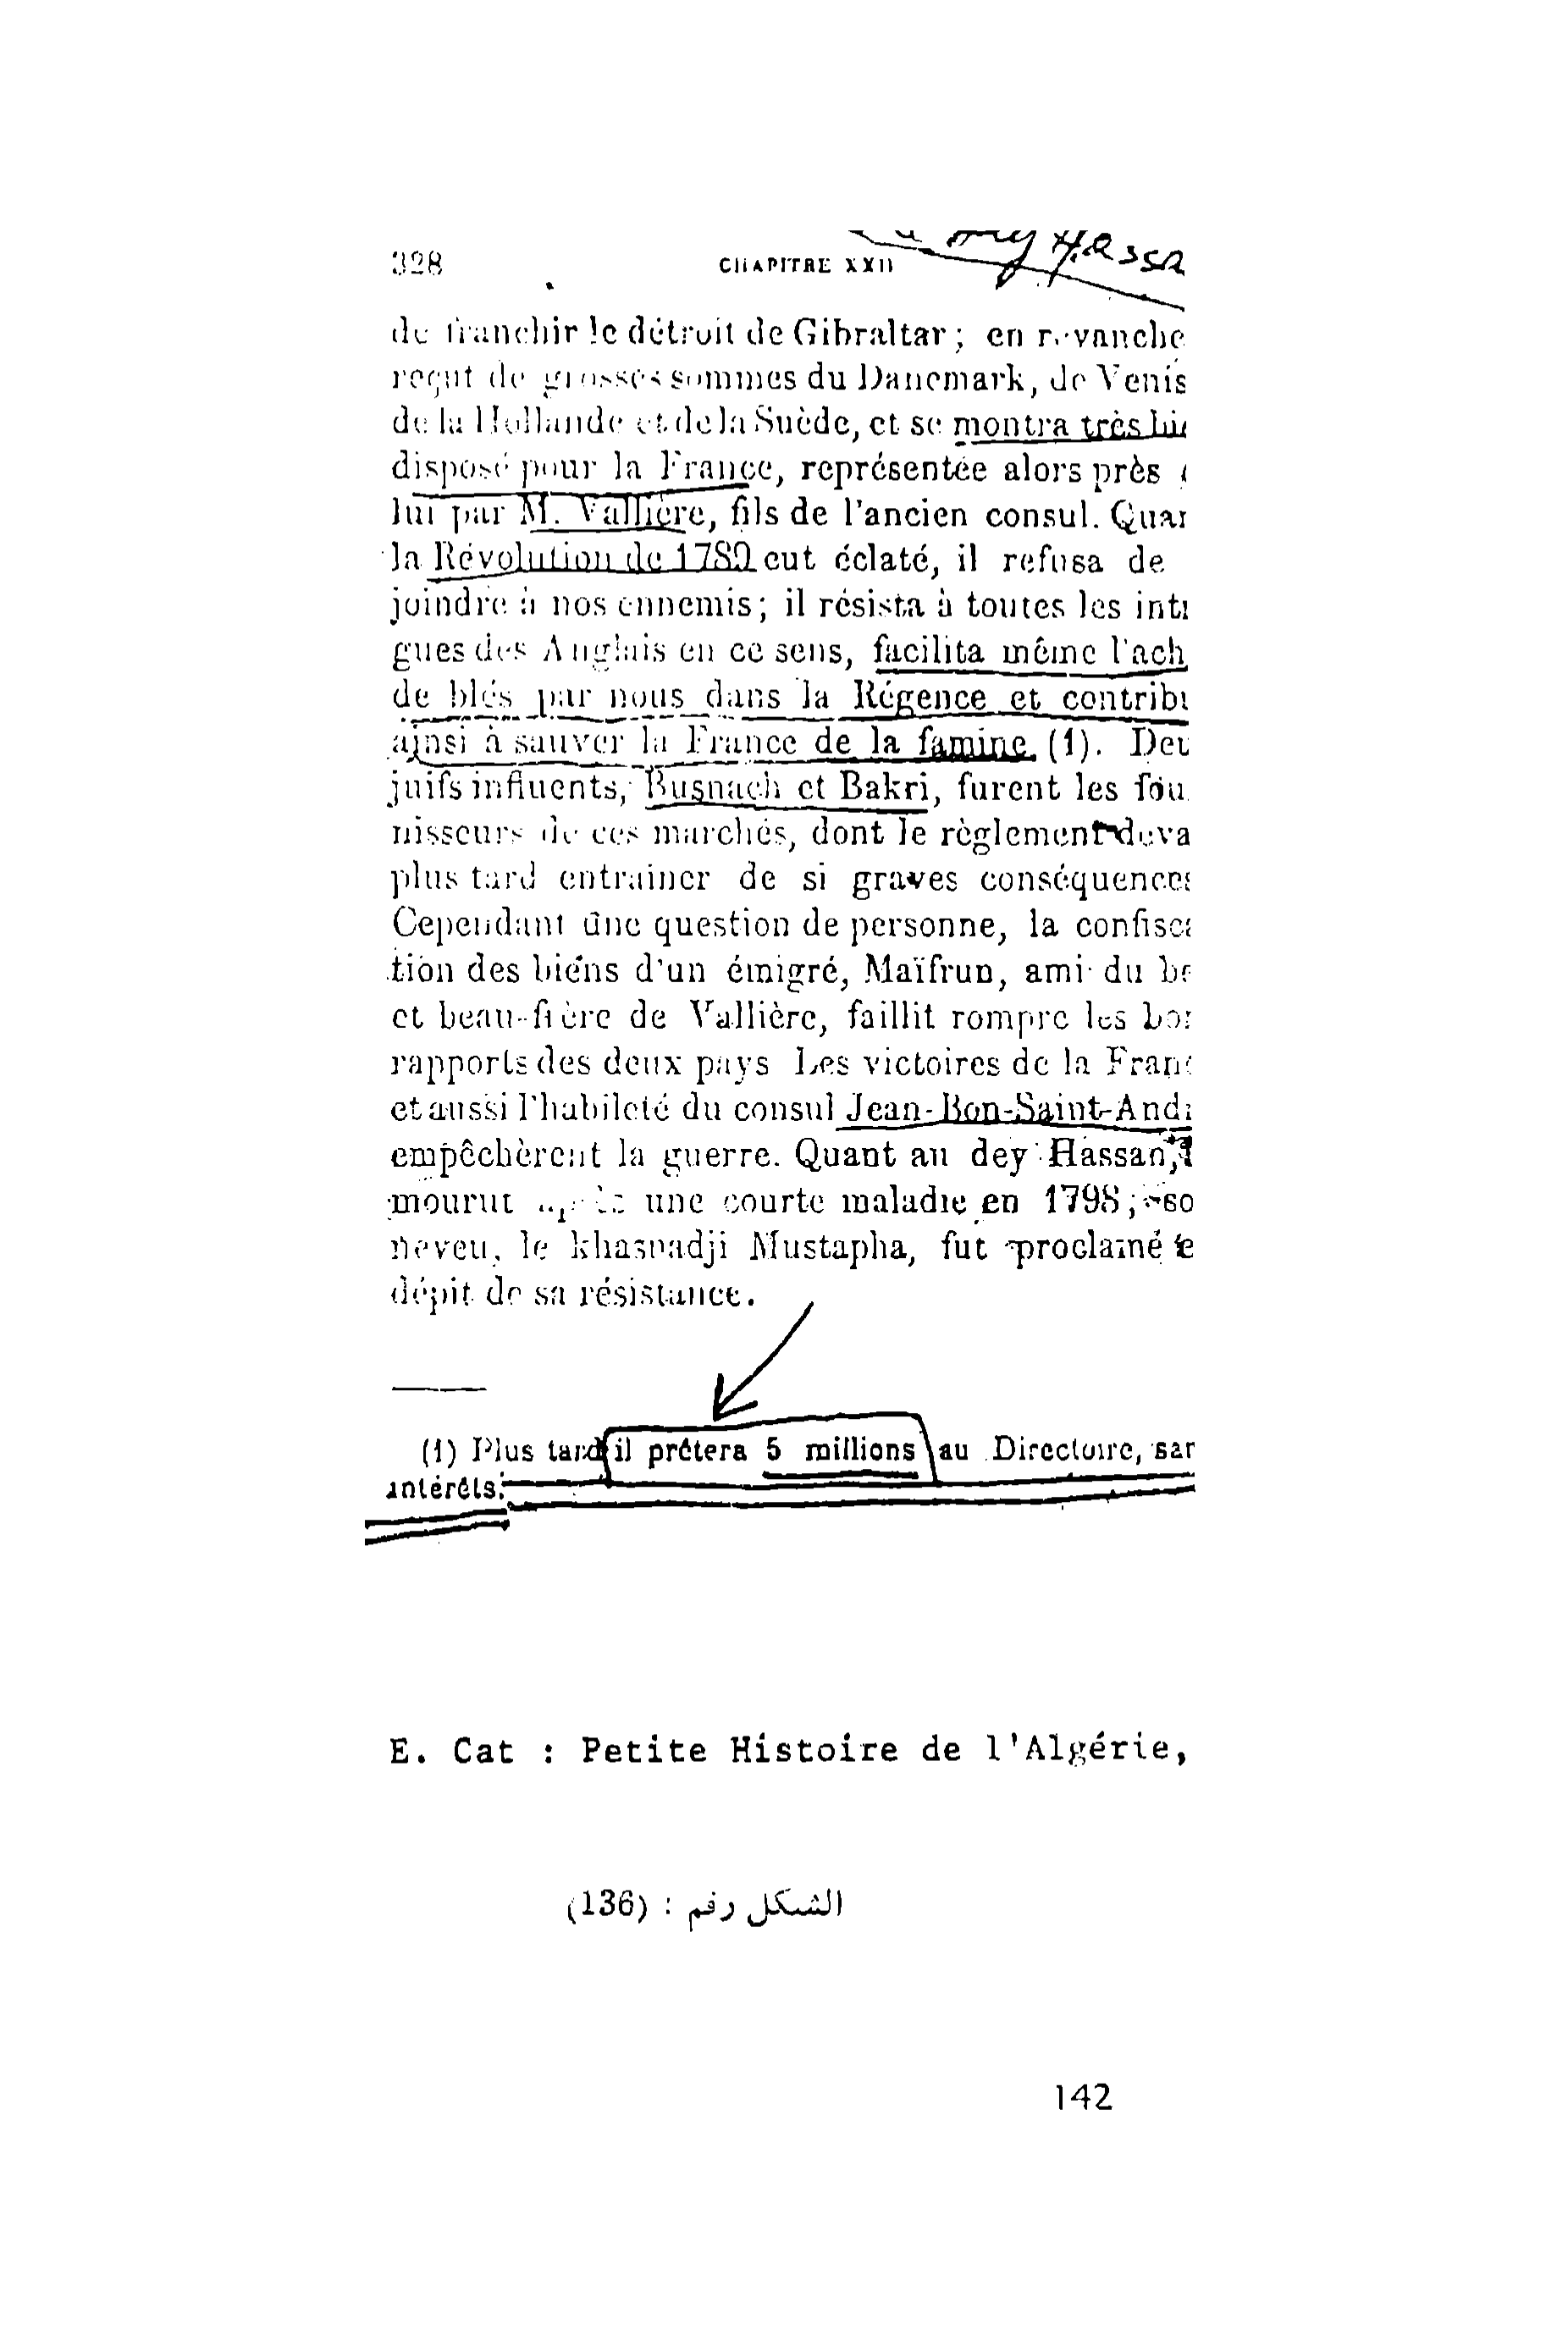 328 CHAPITRE XXII
dey Hassa
de franchir le détroit de Gibraltar ; en revanche
reçut de grosses sommes du Danemark, de Venis
de la Hollande et de la Suède, et se montra très bi
disposé pour la France, représentée alors près
lui par M. Vallière, fils de l'ancien consul. Qua
la Révolution de 1789 eut éclaté, il refusa de
joindre à nos ennemis; il résista à toutes les int
gues des Anglais en ce sens, facilita même l'ach
de blés par nous dans la Régence et contrib
ainsi à sauver la France de la famine (1). De
juifs influents, Busnach et Bakri, furent les fou
nisseurs de ces marchés, dont le règlement deva
plus tard entrainer de si graves conséquences
Cependant une question de personne, la confisc
tion des biens d'un émigré, Maïfrun, ami du be
et beau-frère de Vallière, faillit rompre les bo
rapports des deux pays Les victoires de la Fran
et aussi l'habileté du consul Jean-Bon-Saint-And
empêchèrent la guerre. Quant au dey Hassan,
mourut après une courte maladie en 1798 ; so
neveu, le khasnadji Mustapha, fut proclamé e
dépit de sa résistance.
(1) Plus tard il prêtera 5 millions au Directoire, san
intérêts.
E. Cat : Petite Histoire de l'Algérie,
الشكل رقم : (136)
142